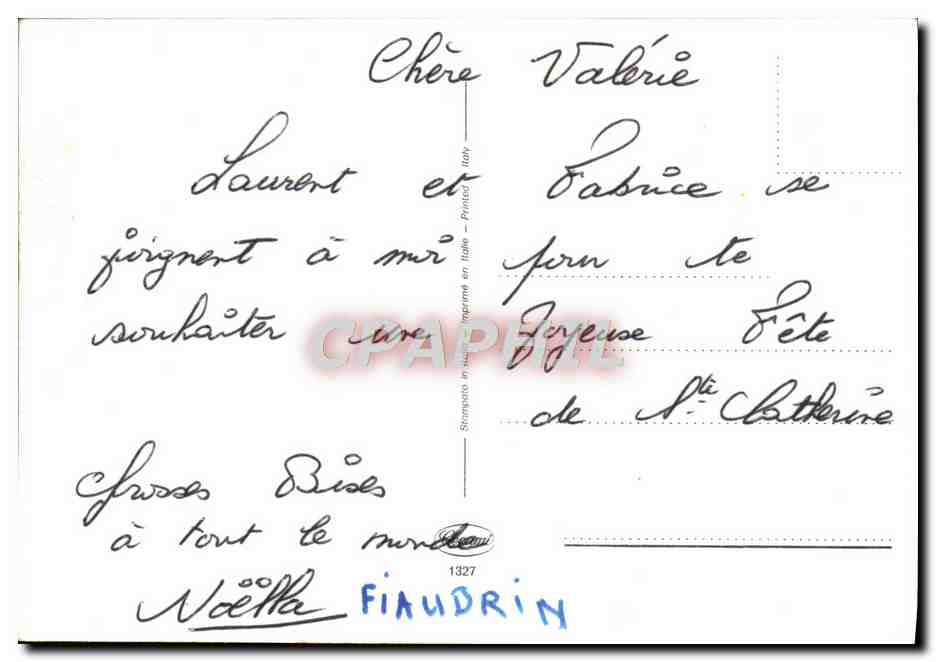 Chère Valérie
Laurent et Fabrice se
joignent à moi pour te
souhaiter une Joyeuse Fête
de Ste Catherine
Grosses Bises
à tout le monde
Noëlla FIAUDRIN
Stampato in Italia – Imprimé en Italie – Printed in Italy
1327
CPAPHIL